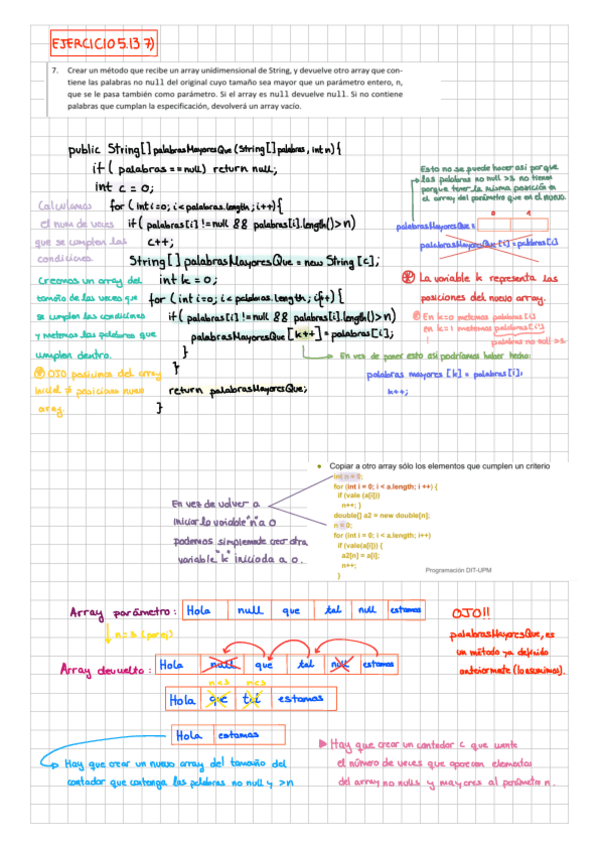 EJERCICIO 5.13 7)
7. Crear un método que recibe un array unidimensional de String, y devuelve otro array que con-
tiene las palabras no null del original cuyo tamaño sea mayor que un parámetro entero, n,
que se le pasa también como parámetro. Si el array es null devuelve null. Si no contiene
palabras que cumplan la especificación, devolverá un array vacío.
public String[] palabrasMayoresQue (String[] palabras, int n) {
if ( palabras == null) return null;
int c = 0;
for ( int i=0; i<palabras.length; i++) {
if ( palabras[i] != null && palabras[i].length() > n)
c++;
String[] palabrasMayoresQue = new String [c];
int k = 0;
for ( int i=0; i<palabras.length; i++) {
if ( palabras[i] != null && palabras[i].length() > n)
palabrasMayoresQue [k++] = palabras[i];
}
}
return palabrasMayoresQue;
}
Calculamos
el num de veces
que se cumplen las
condiciones.
Creamos un array del
tamaño de las veces que
se cumplen las condiciones
y metemos las palabras que
cumplen dentro.
OJO posiciones del array
inicial ≠ posiciones nuevo
array.
Esto no se puede hacer así porque
las palabras no null >3 no tienen
porque tener la misma posición en
el array del parámetro que en el nuevo.
0 1
palabrasMayoresQue =
palabrasMayoresQue [i] = palabras [i]
La variable k representa las
posiciones del nuevo array.
En k=0 metemos palabras[i]
en k=1 metemos palabras[i]
palabras no null >3
En vez de poner esto así podríamos haber hecho:
palabras mayores [k] = palabras [i];
k++;
• Copiar a otro array sólo los elementos que cumplen un criterio
int n = 0;
for (int i = 0; i < a.length; i ++) {
if (vale (a[i]))
n++; }
double[] a2 = new double[n];
n = 0;
for (int i = 0; i < a.length; i++)
if (vale(a[i])) {
a2[n] = a[i];
n++;
}
Programación DIT-UPM
En vez de volver a
iniciar la variable "n" a 0
podemos simplemente crear otra
variable "k" iniciada a 0.
Array parámetro: Hola null que tal null estamos
n=3 (por ej)
Array devuelto: Hola null que tal null estamos
n<3 n<3
Hola que tal estamos
Hola estamos
OJO!!
palabrasMayoresQue, es
un método ya definido
anteriormente (lo asumimos).
Hay que crear un nuevo array del tamaño del
contador que contenga las palabras no null y >n
Hay que crear un contador c que cuente
el número de veces que aparecen elementos
del array no nulls y mayores al parámetro n.